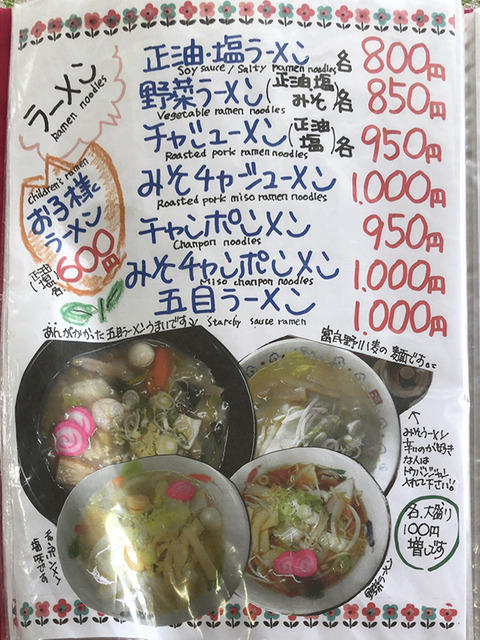 ラーメン
Ramen noodles
正油・塩ラーメン 各 800円
Soy sauce / Salty ramen noodles
野菜ラーメン(正油 塩 みそ)各 850円
Vegetable ramen noodles
チャジューメン(正油 塩)各 950円
Roasted pork ramen noodles
みそチャジューメン 1.000円
Roasted pork miso ramen noodles
チャンポンメン 950円
Chanpon noodles
みそチャンポンメン 1.000円
Miso chanpon noodles
五目ラーメン 1.000円
Starchy sauce ramen
children's ramen
お子様
ラーメン
600円
正油
塩 各
あんがかかった五目ラーメンうまいです
富良野小麦の麺です。
みそラーメン
辛いのが好き
なん人は
トウバンジャン
入れて下さい!!
各、大盛り
100円
増しです
塩味です
野菜ラーメン